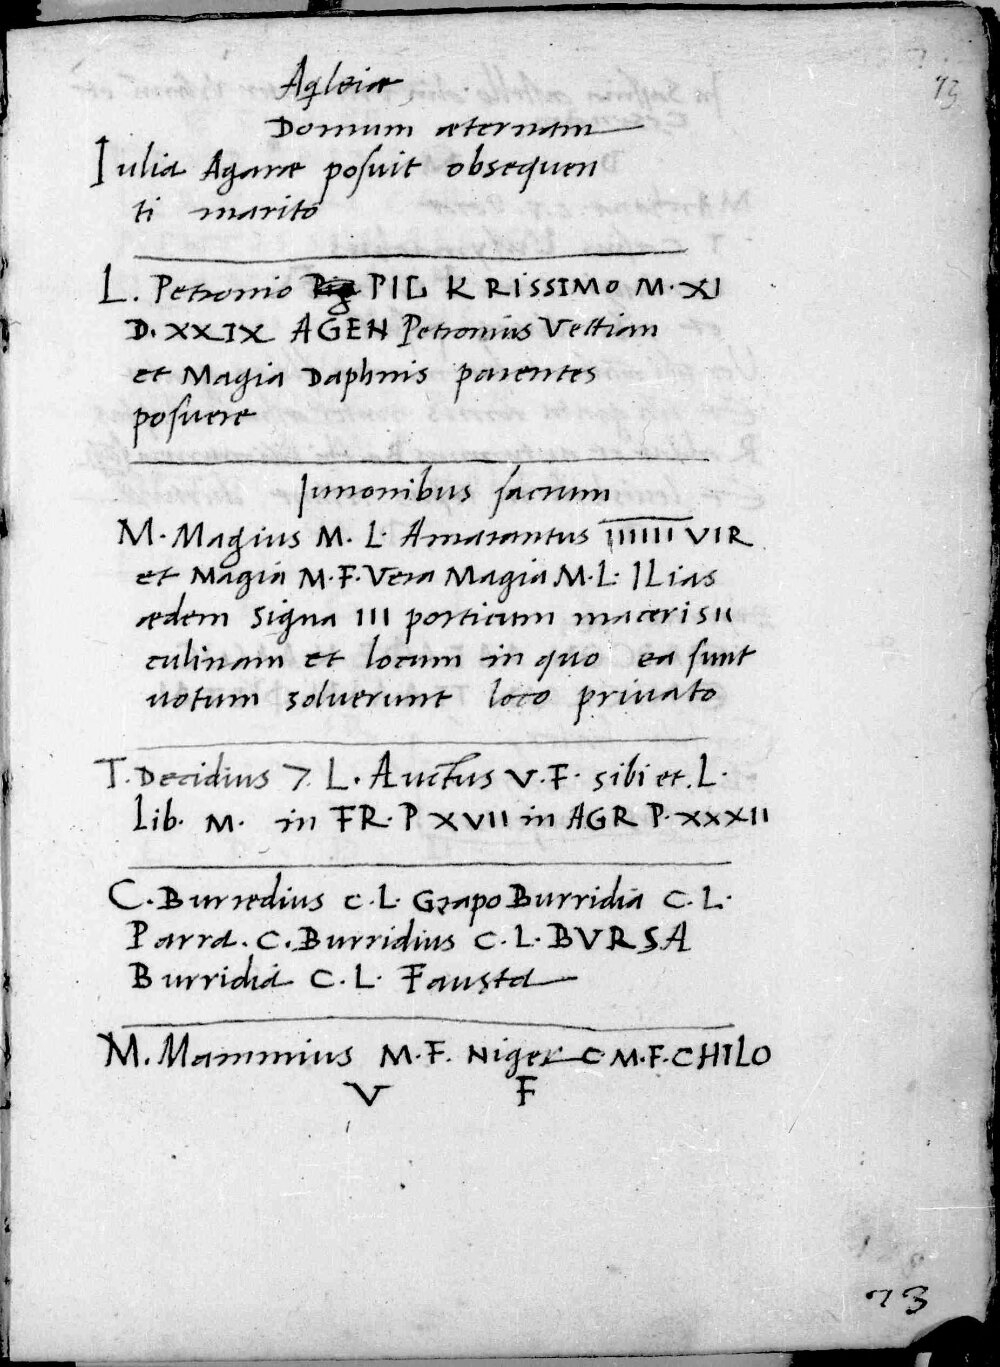 73
Aqleiæ
Domum æternam
Iulia Agaræ posuit obsequen
ti marito
L. Petronio PIL KRISSIMO M. XI
D. XXIX AGEN Petronius Vettian
et Magia Daphnis parentes
posuere
Iunonibus sacrum
M. Magius M. L. Amarantus IIIIII VIR
et Magia M. F. Vera Magia M. L. ILias
ædem Signa III porticum macerisII
culinam et locum in quo ea sunt
votum solverunt loco privato
T. Decidius 7 L. Auctus V. F. sibi et. L.
Lib. M. in FR. P XVII in AGR P. XXXII
C. Burredius C. L. Grapo Burridia C. L.
Parra. C. Burridius C. L. BVRSA
Burridia C. L. Fausta
M. Mammius M. F. Niger C. M. F. CHILO
V F
73